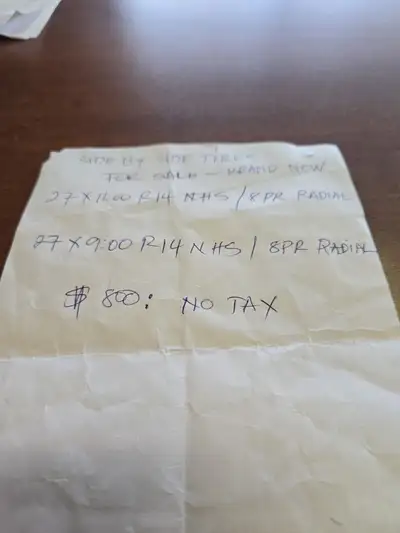 SIDE BY SIDE TIRES
FOR SALE - BRAND NEW
27 X 11.00 R14 NHS / 8 PR RADIAL
27 X 9:00 R14 NHS / 8PR RADIAL
$ 800: NO TAX